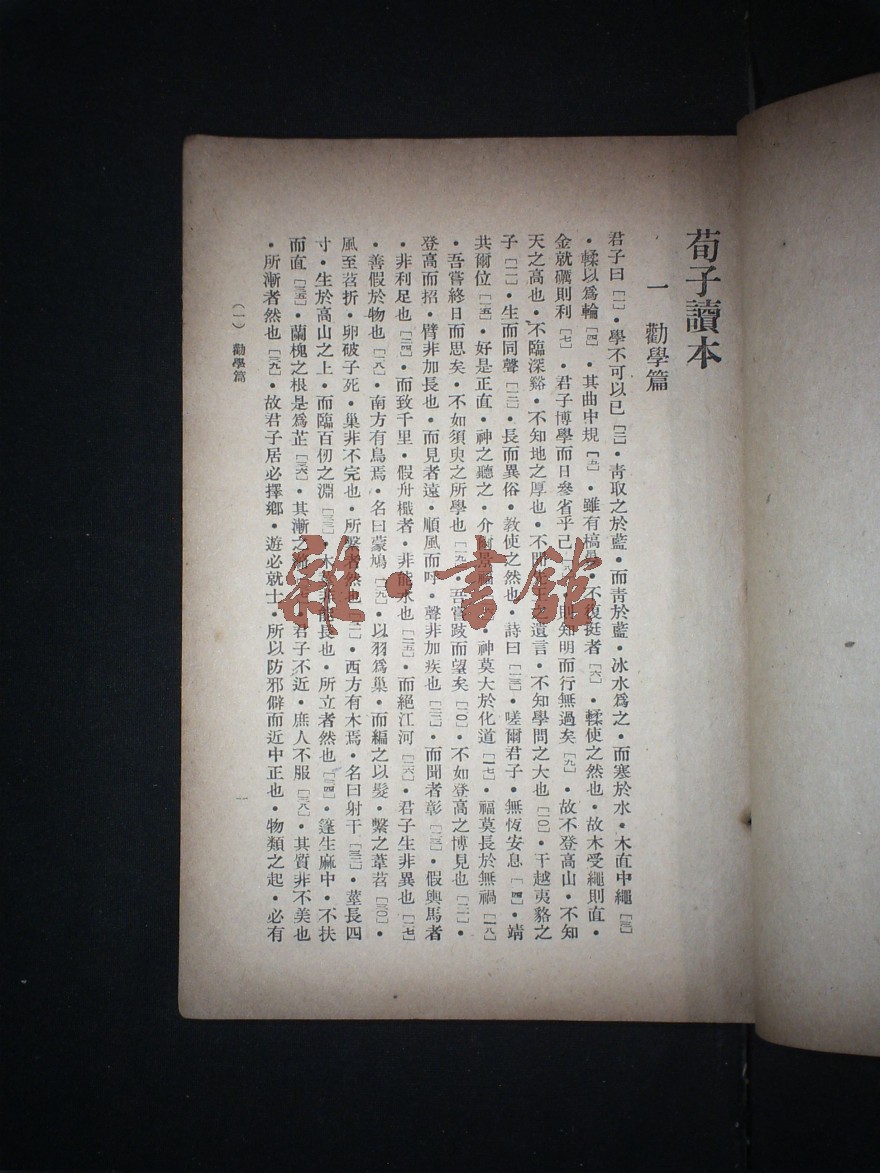 荀子讀本
一 勸學篇
君子曰[一]・學不可以已[二]・靑取之於藍・而靑於藍・冰水爲之・而寒於水・木直中繩[三]
・輮以爲輪[四]・其曲中規[五]・雖有槁・不復挺者[六]・輮使之然也・故木受繩則直・
金就礪則利[七]・君子博學而日參省乎己則知明而行無過矣[九]・故不登高山・不知
天之高也・不臨深谿・不知地之厚也・不遺言・不知學問之大也[一〇]・干越夷貉之
子[一一]・生而同聲[一二]・長而異俗・敎使之然也・詩曰[一三]・嗟爾君子・無恆安息[一四]・靖
共爾位[一五]・好是正直・神之聽之・介福・神莫大於化道[一七]・福莫長於無禍[一八]
・吾嘗終日而思矣・不如須臾之所學也[一九]・吾嘗跂而望矣[二〇]・不如登高之博見也[二一]・
登高而招・臂非加長也・而見者遠・順風而呼・聲非加疾也[二二]・而聞者彰[二三]・假輿馬者
・非利足也[二四]・而致千里・假舟檝者・非能水也[二五]・而絕江河[二六]・君子生非異也[二七]
・善假於物也[二八]・南方有鳥焉・名曰蒙鳩[二九]・以羽爲巢・而編之以髮・繫之葦苕[三〇]・
風至苕折・卵破子死・巢非不完也・所繫者然也・西方有木焉・名曰射干[三二]・莖長四
寸・生於高山之上・而臨百仞之淵[三三]・木長也・所立者然也[三四]・蓬生麻中・不扶
而直[三五]・蘭槐之根是爲芷[三六]・其漸之・君子不近・庶人不服[三八]・其質非不美也
・所漸者然也[三九]・故君子居必擇鄕・遊必就士・所以防邪僻而近中正也・物類之起・必有
(一) 勸學篇
一
雜・書館